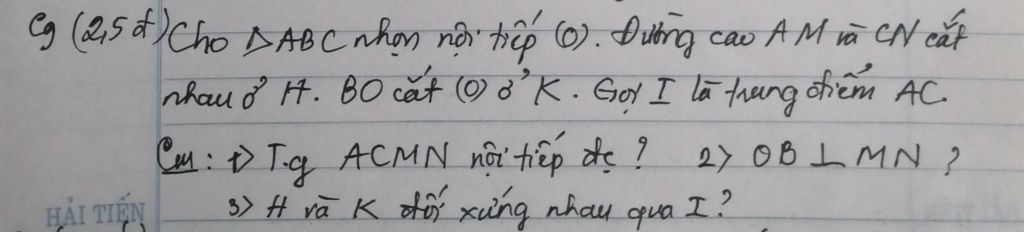 Cg (2,5 đ) Cho △ABC nhọn nội tiếp (O). Đường cao AM và CN cắt
nhau ở H. BO cắt (O) ở K. Gọi I là trung điểm AC.
Cm: 1> T.g ACMN nội tiếp đc? 2> OB ⊥ MN?
3> H và K đối xứng nhau qua I?
HẢI TIẾN